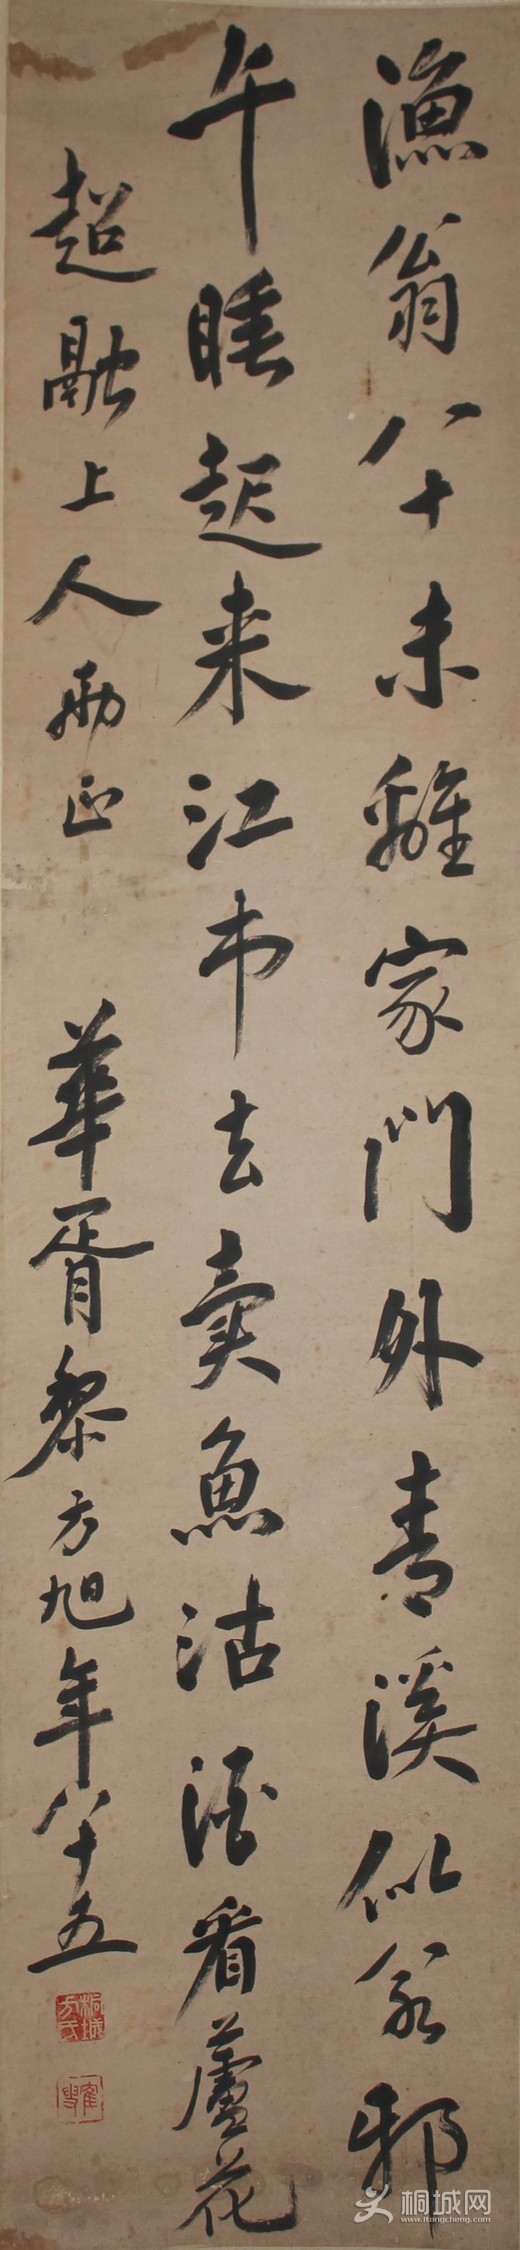 漁翁八十未離家門外青溪似若邪
午睡起来江市去賣魚沽酒看蘆花
超融上人正 華胥黎方旭年八十五
桐城方氏
桐城网
www.itongcheng.com